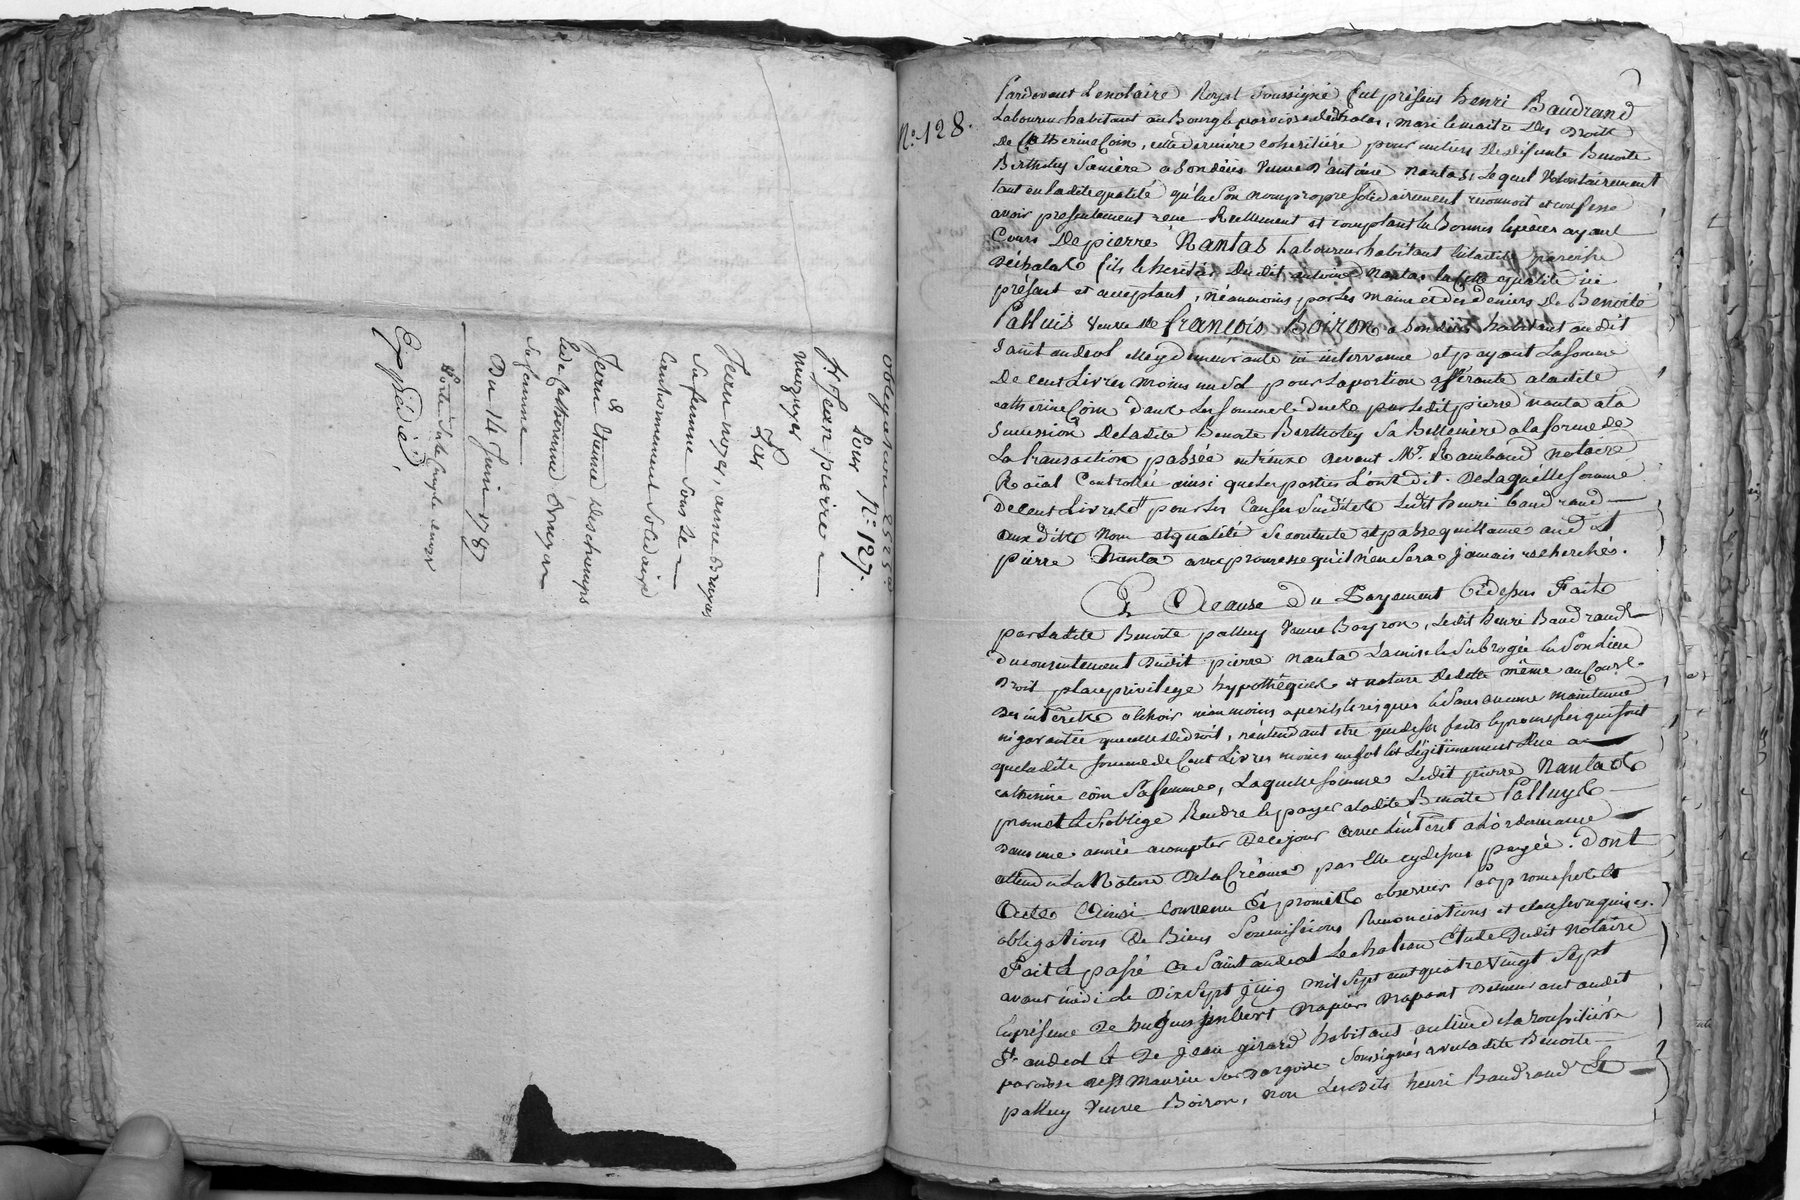 obligation 252₶ 5s
Pour N.º 127.
Sr. Jean pierre
muguyer
Les
Jean noyer, anne Bruyas
Sa femme Sous Le
Cautionnement Solidaire
de
Jean Etienne Deschamps
et de Catherine Bruyas
Sa femme
Du 14 Juin 1787
Expédiée
N.º 128.
Pardevant Le notaire Royal Soussigné fut présent henri Baudrand
Laboureur habitant au Bourg & paroisse d'échalas, mari & maitre Des Droits
De Catherine Coin, cette dernière cohéritière pour un tiers De defunte Benoite
Bertholey Sa mère a Son décès Veuve d'antoine Nantas, Lequel Volontairement
tant en ladite qualité qu'en Son nom propre solidairement reconnoit et confesse
avoir presentement reçu Reellement et comptant en Bonnes Espèces ayant
Cours De pierre Nantas Laboureur habitant en ladite paroisse
d'échalas fils & héritier Dudit antoine Nantas en cette qualité ici
présent et acceptant, néanmoins par Les mains et des deniers De Benoite
Palluis Veuve de françois Boiron a Son décès habitant audit
Saint andeol elle y demeurante ici intervenue et payant La somme
De Cent Livres moins un sol pour La portion afférante a ladite
catherine Coin Dans Les sommes Dues par Ledit pierre nanta a la
Succession De ladite Benoite Bertholey Sa Bellemère a la forme de
La transaction passée entreux devant Me. Rambaud Notaire
Roïal Controllée ainsi que Les parties L'ont dit. De Laquelle somme
De cent Livres pour Les Causes Susdites Ledit henri baudrand
aux dits Nom et qualité Se contente et passe quittance audit
pierre Nanta avec promesse qu'il n'en Sera jamais recherché.
Et A Cause Du Payement Cidessus Fait
par Ladite Benoite palluy Veuve Boyron, Ledit henri Baudrand
Du consentement Dudit pierre nanta La mise & Subrogée en Son Lieu
Droit place privilege hypothèques et nature De dette même au Cours
Des intérêts a échoir néanmoins a perils & risques & Sans aucune maintenue
ni garantie que celle De droit, n'entendant être que de ses faits & promesses qui sont
que ladite somme de Cent Livres moins un sol est Légitimement Due a
catherine coin Sa femme, Laquelle somme Ledit pierre Nantas
promet & S'oblige Rendre & payer a ladite Benoite Palluy
Dans une année a compter De ce jour avec L'intérêt a L'ordonnance
attendu La Nature De La Créance par Elle cy dessus payée. Dont
Acte. Ainsi Convenu & promis observer Par promesses et
obligations De Biens Soumissions Renonciations et clauses requises.
Fait & passé a Saint andeol Le chateau Etude Dudit Notaire
avant midi Le Dix Sept juin mil Sept cent quatre Vingt Sept
En présence De hugues jmbert Drapier Drapant Demeurant audit
St. andeol & De Jean girard habitant au lieu de La roussilière
paroisse de St Maurice Sur Dargoire Soussignés avec ladite Benoite
palluy Veuve Boiron, non Lesdits henri Baudrand &